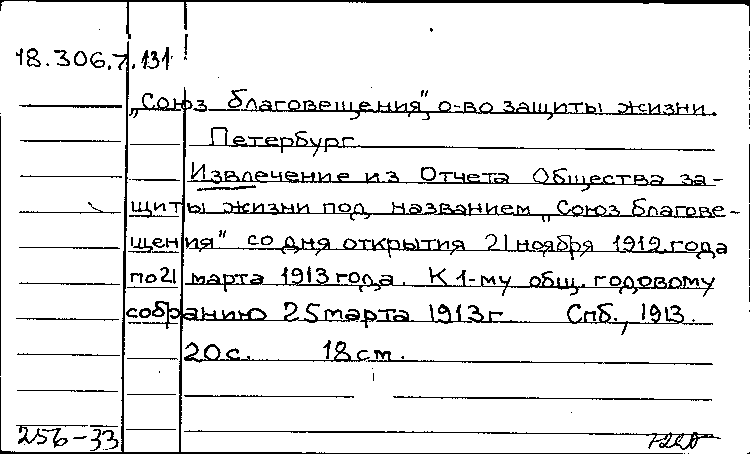 18.306.7.131
„Союз благовещения", о-во защиты жизни.
Петербург
Извлечение из Отчета Общества за-
щиты жизни под названием „Союз благове-
щения" со дня открытия 21 ноября 1912 года
по 21 марта 1913 года. К 1-му общ. годовому
собранию 25 марта 1913 г. Спб., 1913.
20 с. 18 см.
256-33